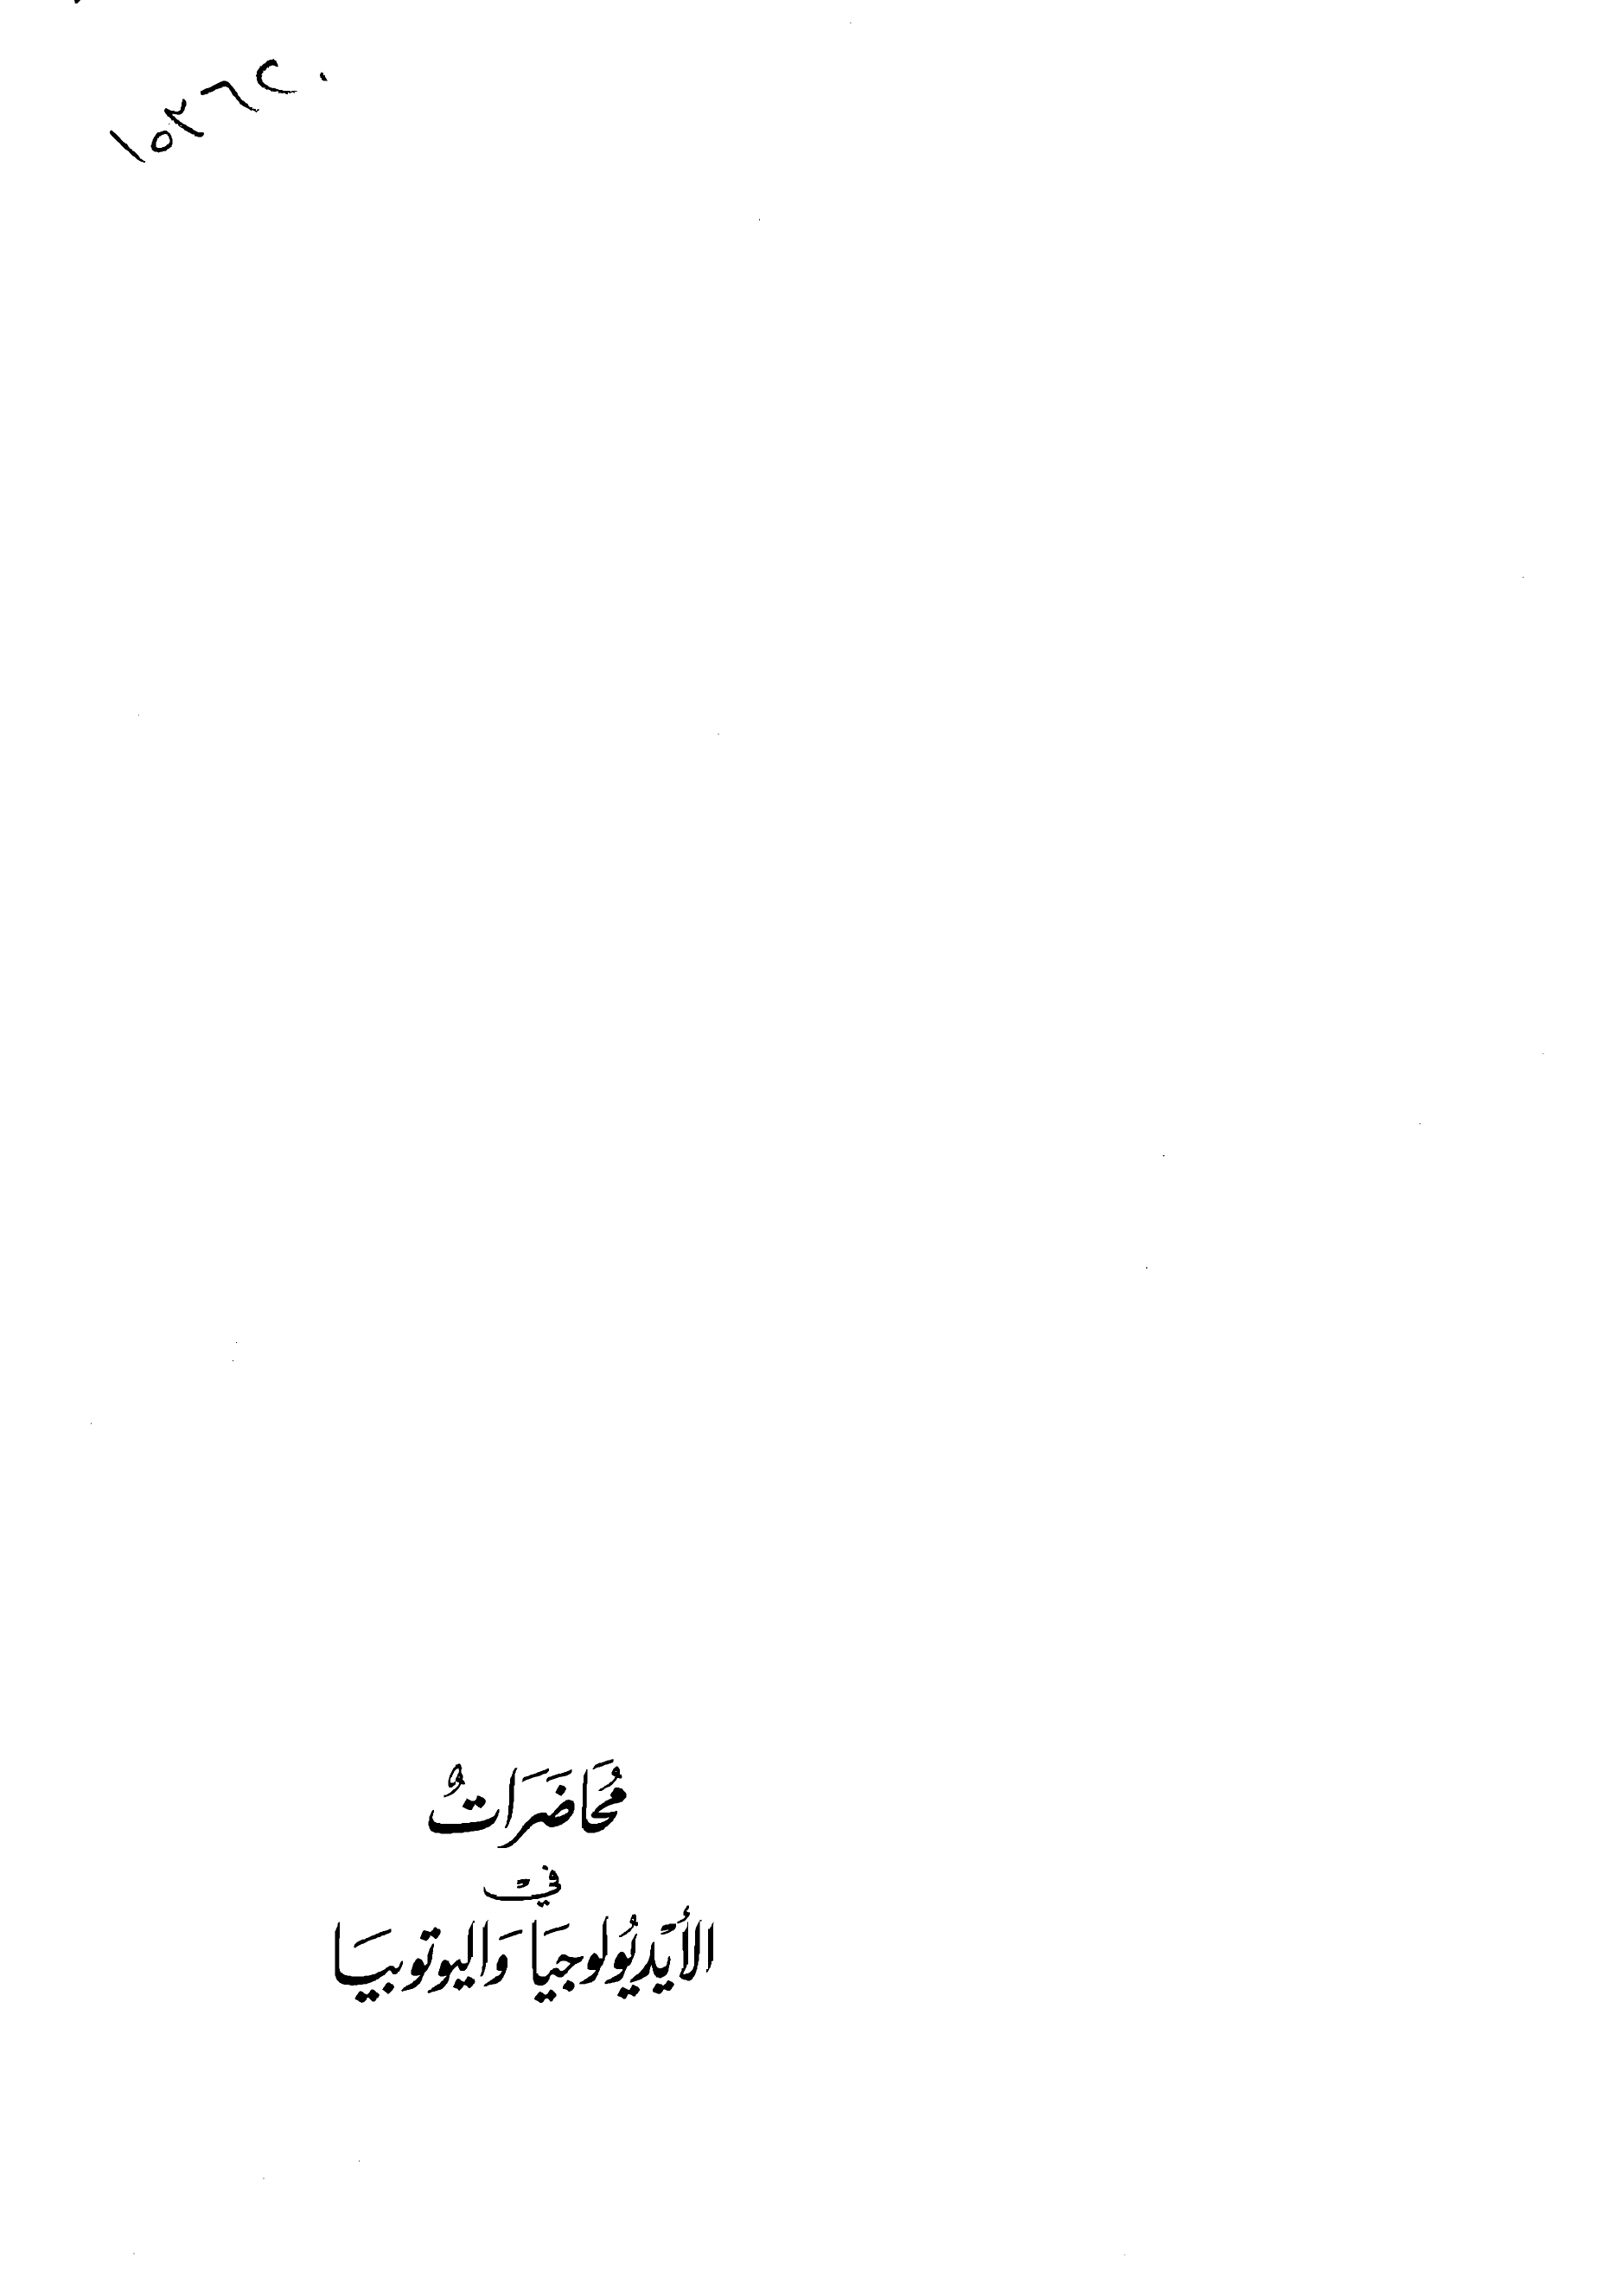 ١٥٢٦٢٠
مُحَاضَرَاتٌ
في
الأيْديُولوجيَا وَاليوتوبيَا